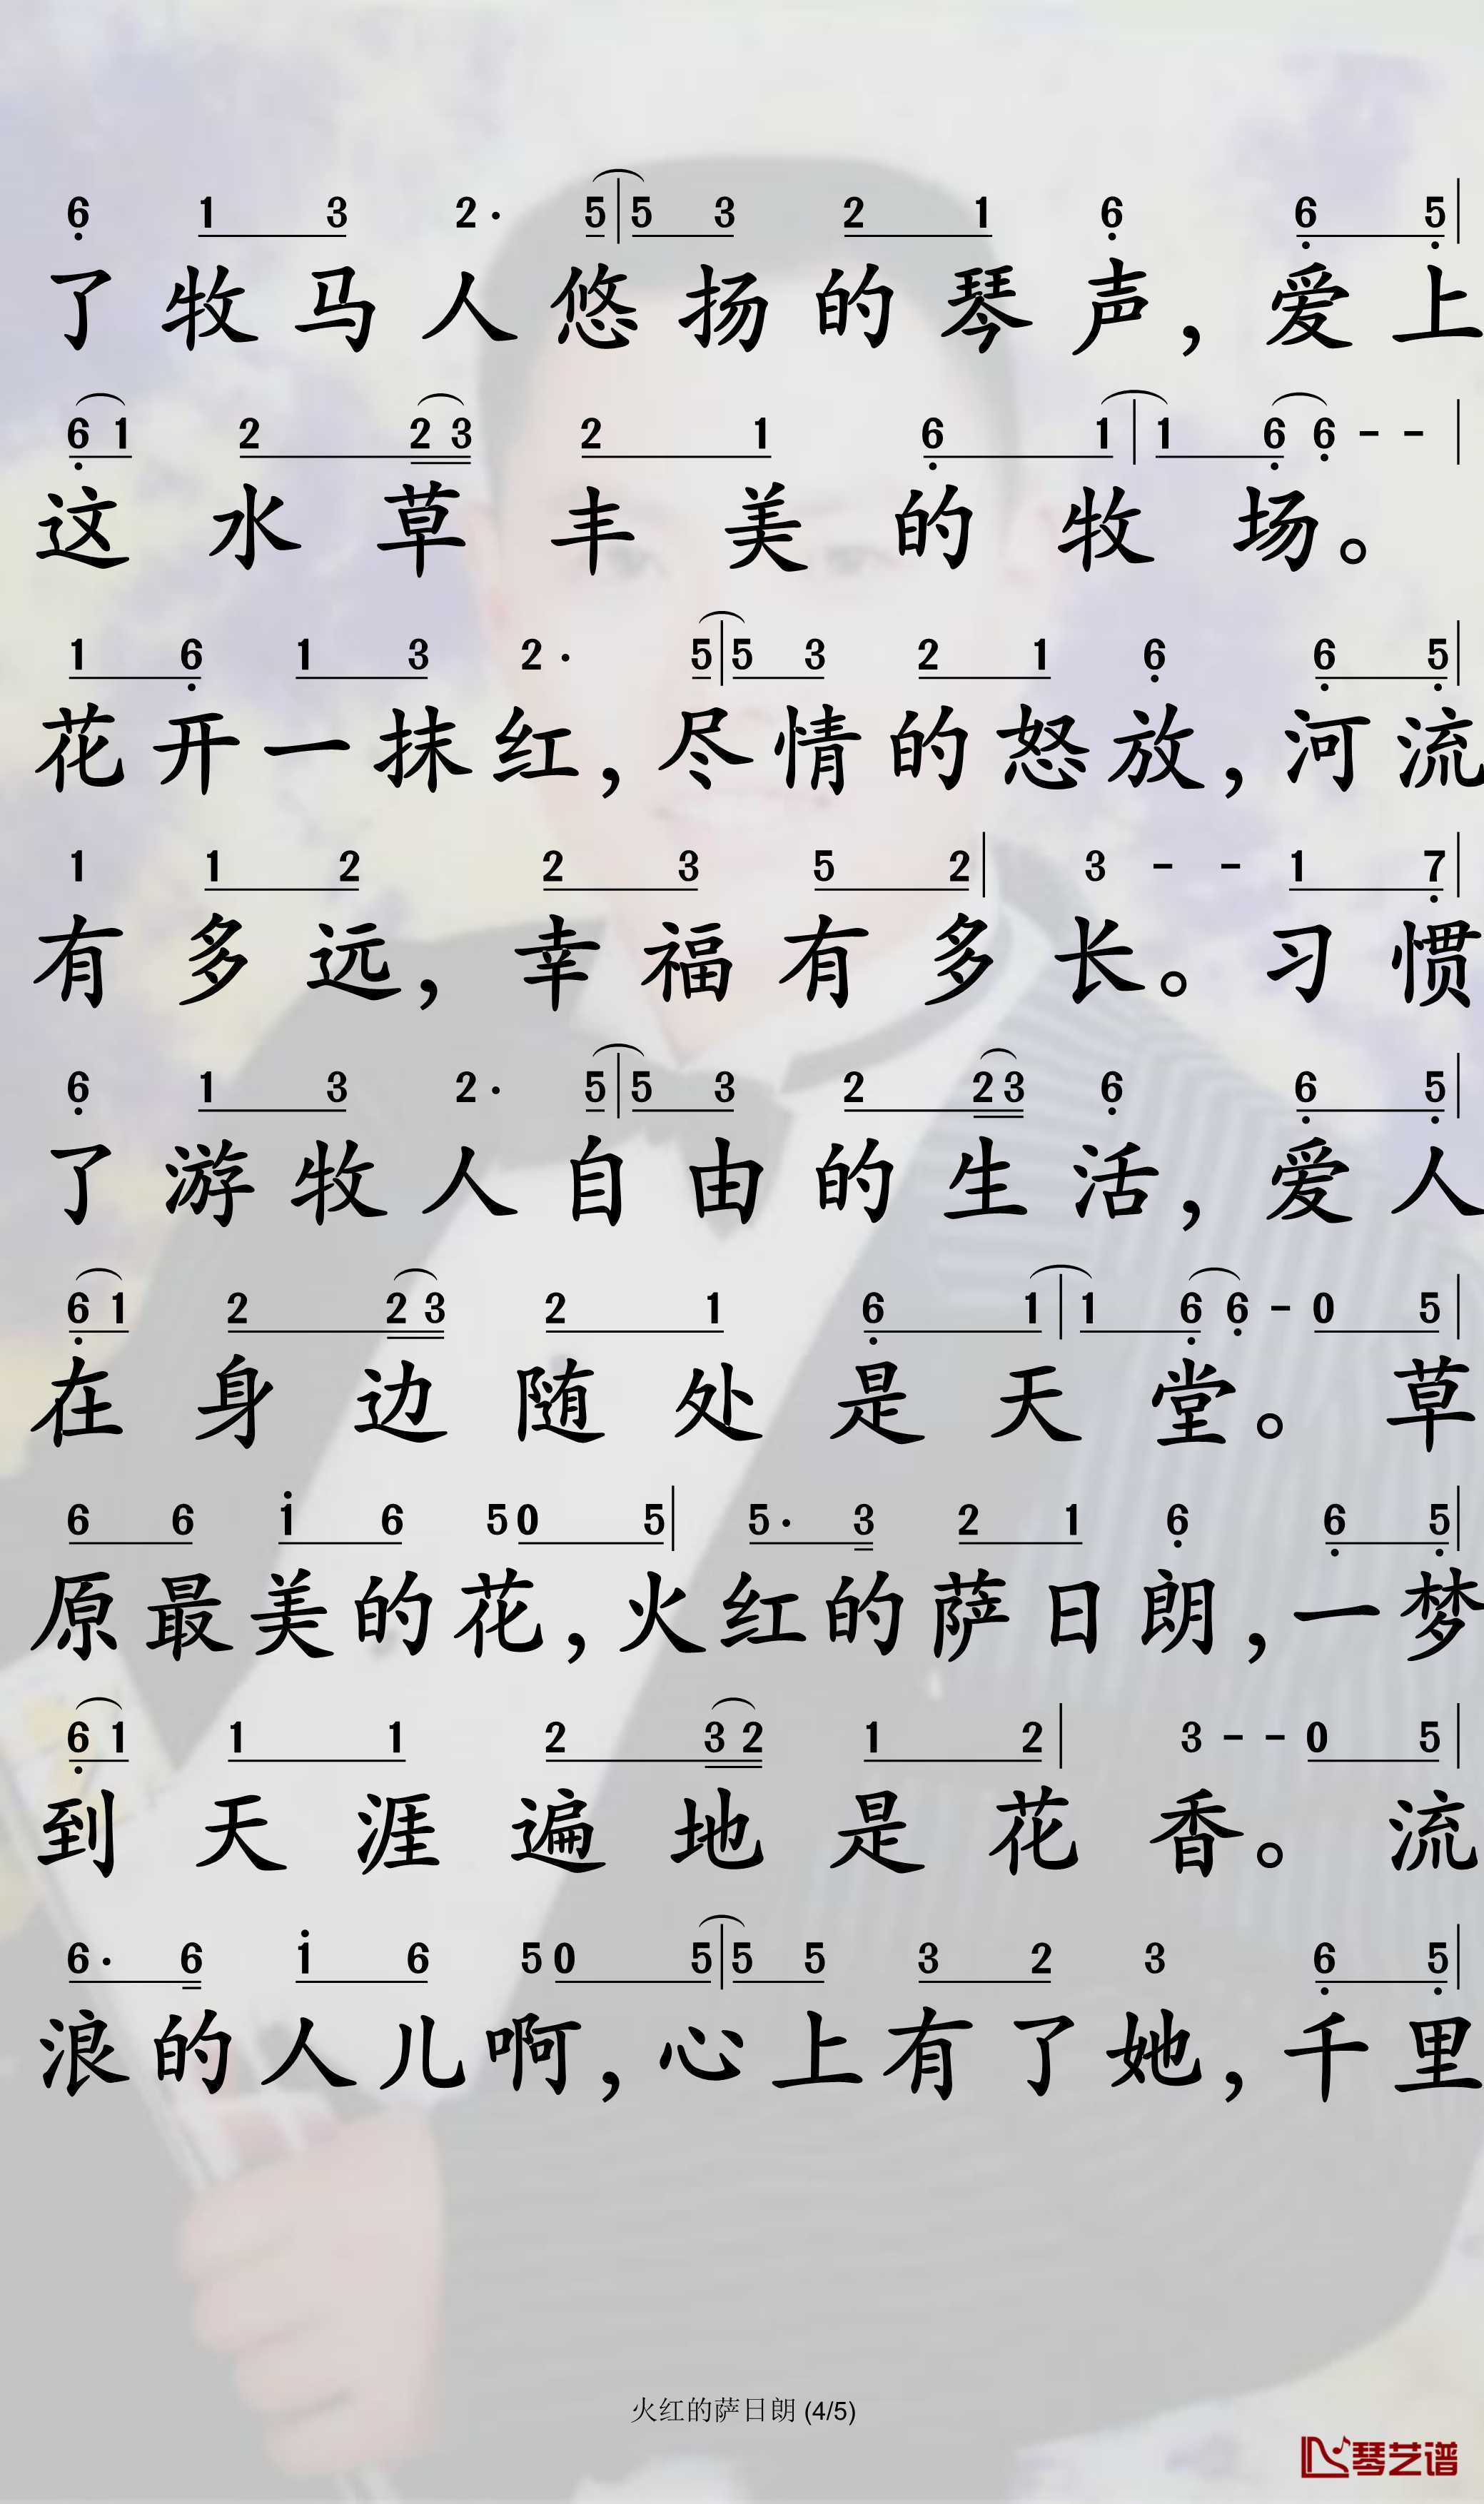 6 1 3 2· 5 | 5 3 2 1 6 6 5 |
了牧马人悠扬的琴声，爱上
6 1 2 2 3 2 1 6 1 | 1 6 6 - - |
这水草丰美的牧场。
1 6 1 3 2· 5 | 5 3 2 1 6 6 5 |
花开一抹红，尽情的怒放，河流
1 1 2 2 3 5 2 | 3 - - 1 7 |
有多远，幸福有多长。习惯
6 1 3 2· 5 | 5 3 2 2 3 6 6 5 |
了游牧人自由的生活，爱人
6 1 2 2 3 2 1 6 1 | 1 6 6 - 0 5 |
在身边随处是天堂。草
6 6 1 6 5 0 5 | 5· 3 2 1 6 6 5 |
原最美的花，火红的萨日朗，一梦
6 1 1 1 2 3 2 1 2 | 3 - - 0 5 |
到天涯遍地是花香。流
6· 6 1 6 5 0 5 | 5 5 3 2 3 6 5 |
浪的人儿啊，心上有了她，千里
火红的萨日朗 (4/5)
琴艺谱